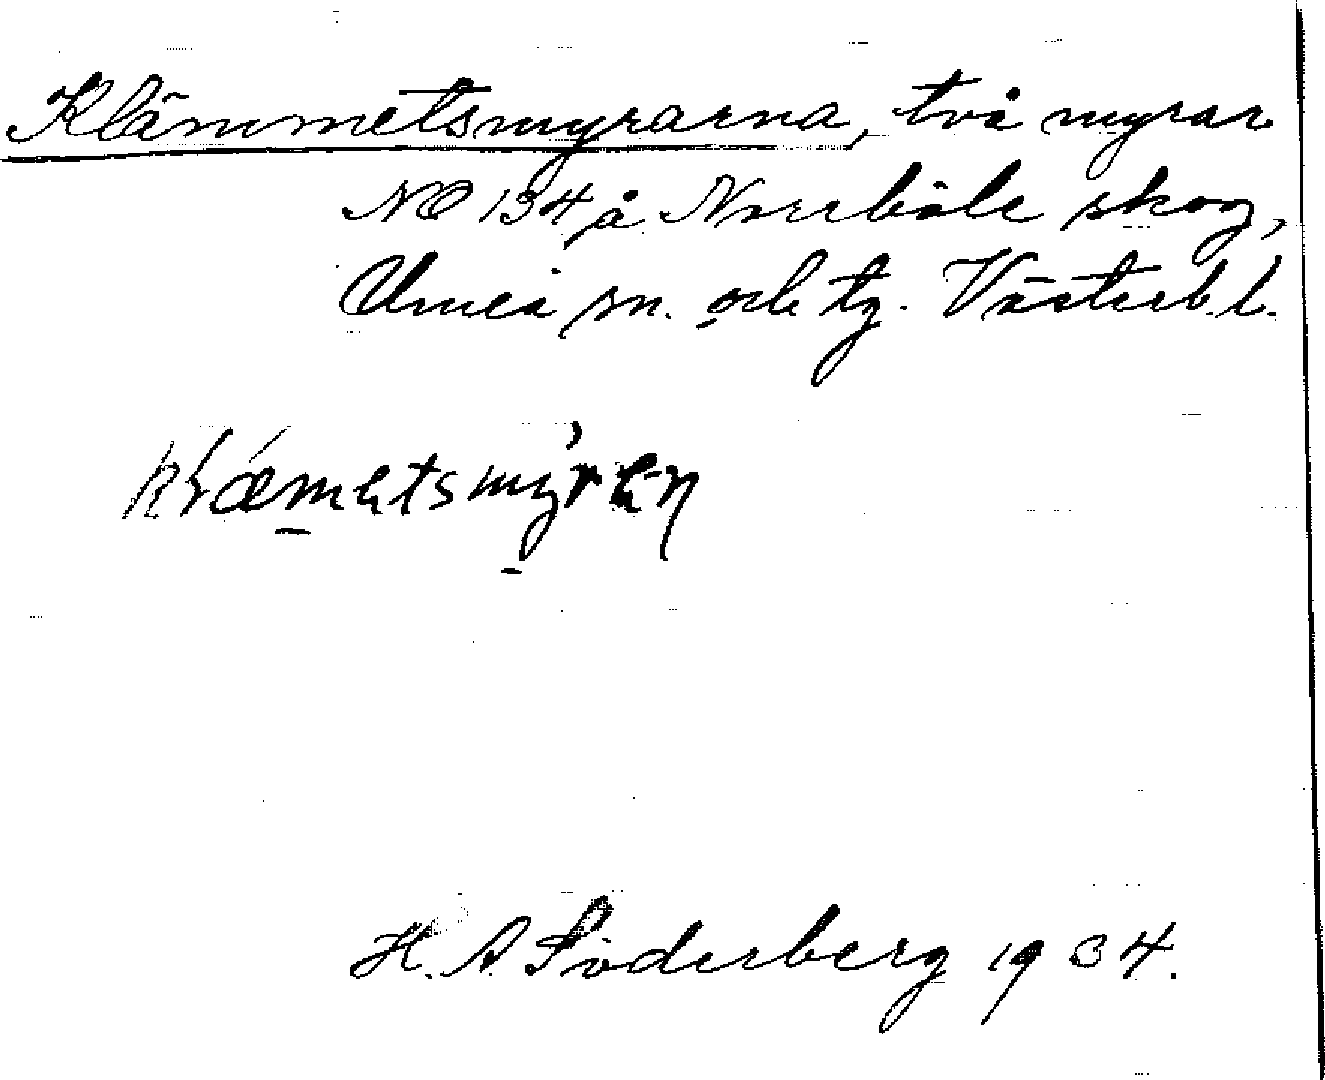 Klämmetsmyrarna, två myrar
NO 134 å Norrböle skog,
Umeå sn. och tg. Västerb. l.
H. A. Söderberg 1934.